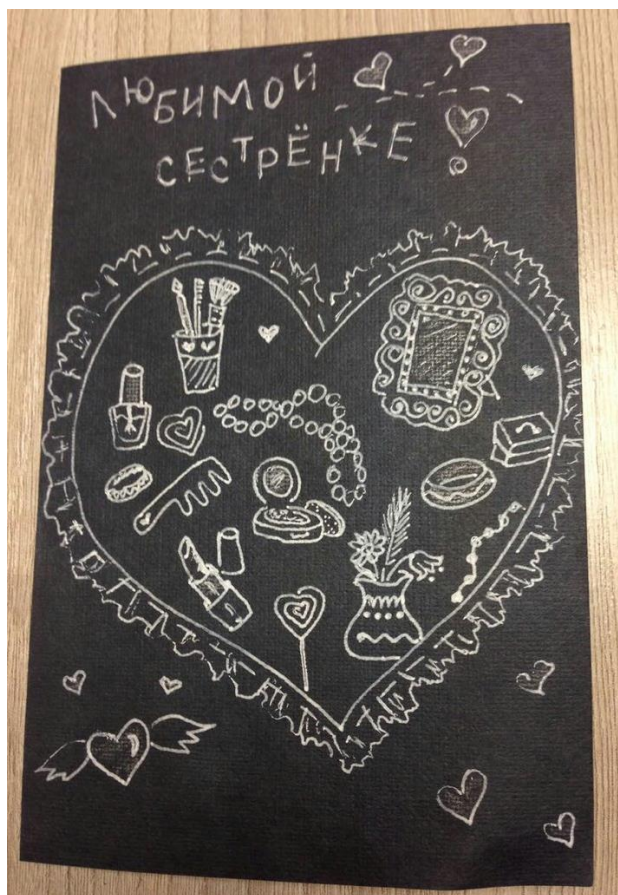 ЛЮБИМОЙ
СЕСТРЁНКЕ